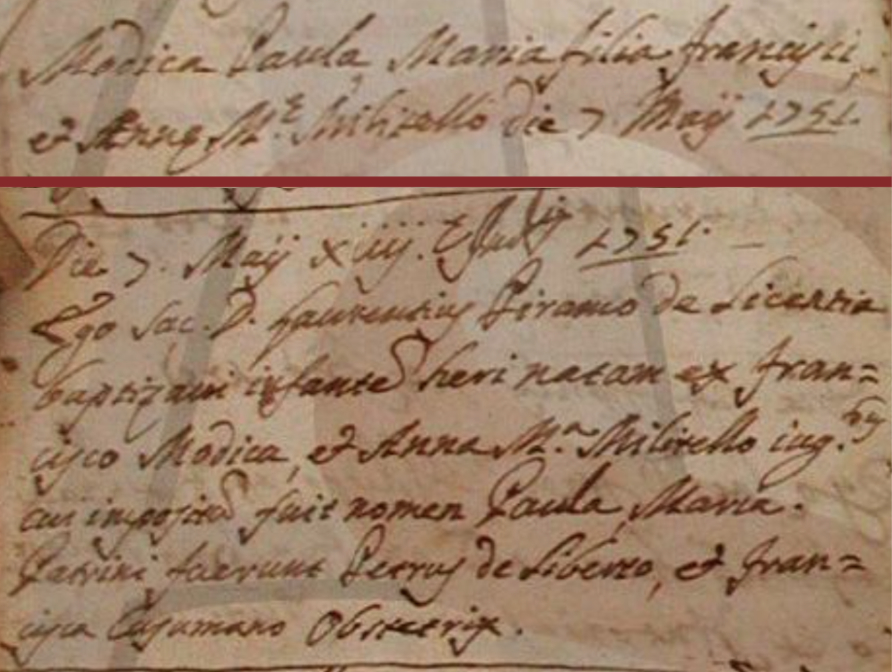 Modica Paula Maria filia Francisci,
et Annę M.ę Militello die 7 Maij 1751.
Die 7. Maij xiiij. Ind. 1751.
Ego Sac. D. Laurentius Piramo de Licentia
baptizavi infante heri natam ex Fran=
cisco Modica, et Anna M.a Militello iug.
cui imposita fuit nomen Paula Maria.
Patrini fuerunt Petrus de Liberto, et Fran=
cisca Cusumano Obstetrix.